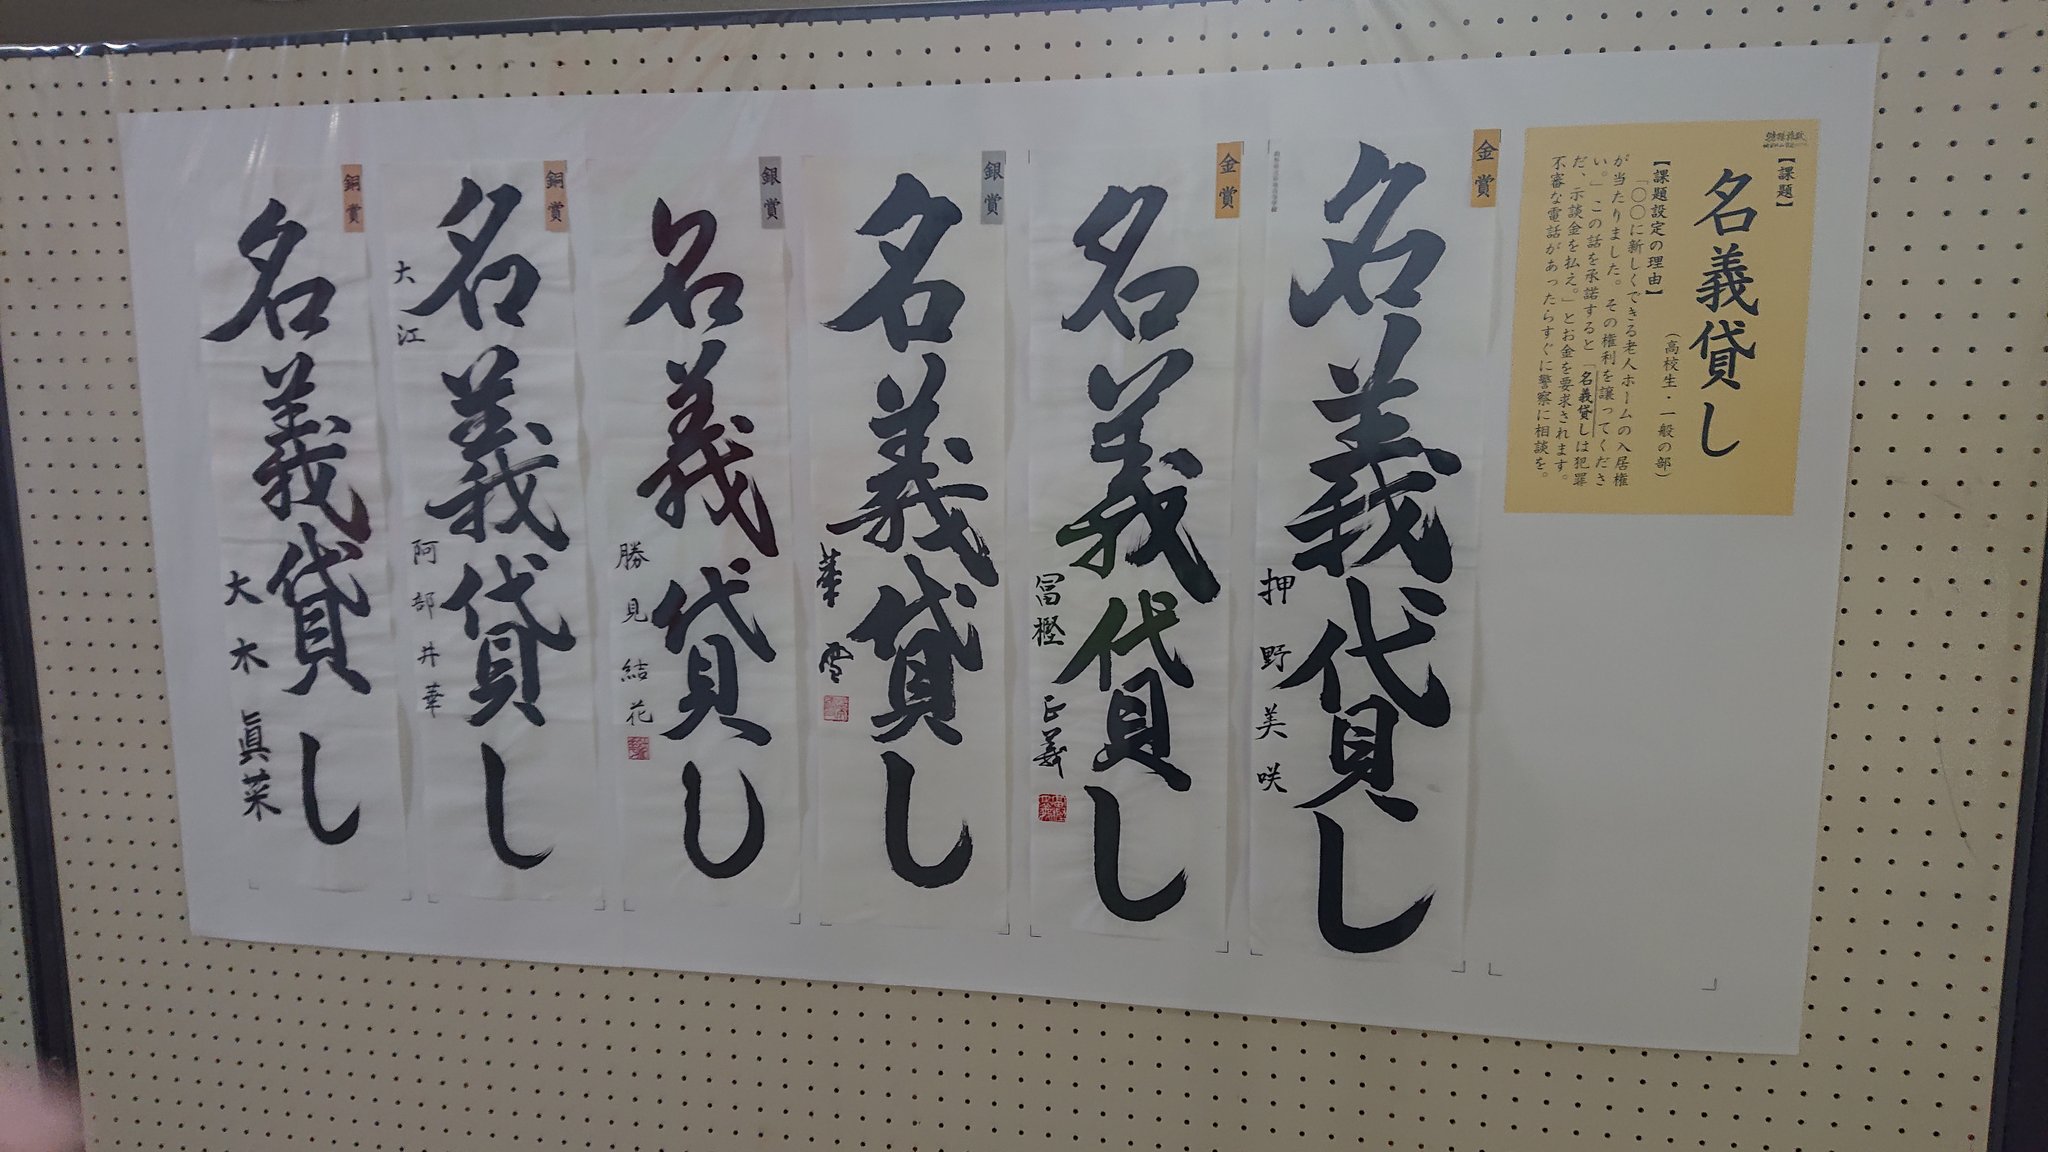 【課題】
名義貸し
(高校生・一般の部)
【課題設定の理由】
「〇〇に新しくできる老人ホームの入居権
が当たりました。その権利を譲ってくださ
い。」この話を承諾すると「名義貸しは犯罪
だ、示談金を払え。」とお金を要求されます。
不審な電話があったらすぐに警察に相談を。
金賞
名義貸し
押野美咲
金賞
名義貸し
冨樫 正義
銀賞
名義貸し
華雪
銀賞
名義貸し
勝見結花
銅賞
名義貸し
大江
阿部井華
銅賞
名義貸し
大木眞菜